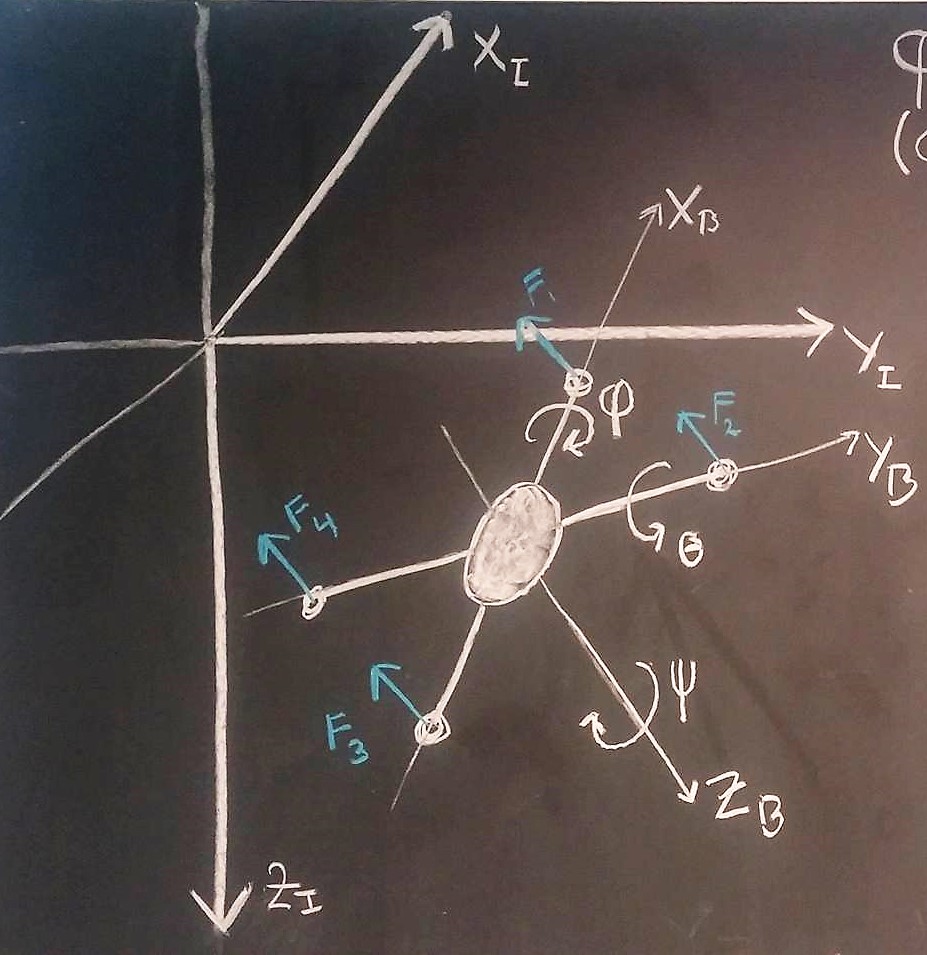 X_I
X_B
F_1
Y_I
φ
F_2
Y_B
F_4
θ
ψ
F_3
Z_B
Z_I